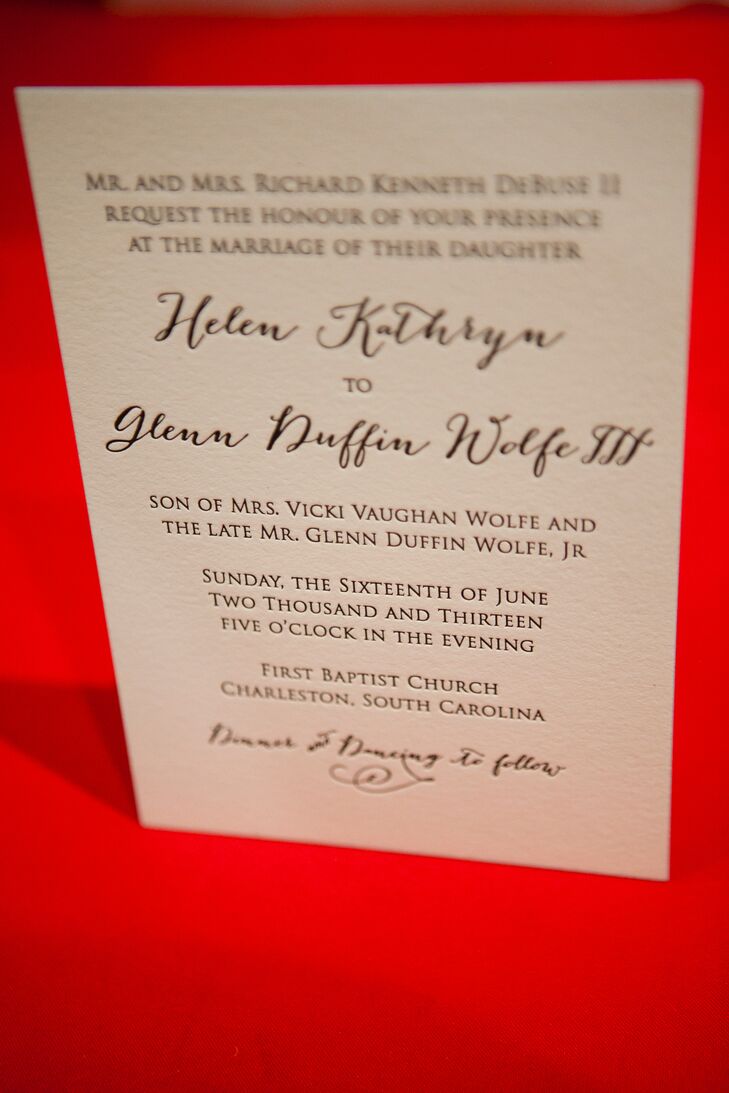 Mr. and Mrs. Richard Kenneth DeBuse II
request the honour of your presence
at the marriage of their daughter
Helen Kathryn
to
Glenn Duffin Wolfe III
son of Mrs. Vicki Vaughan Wolfe and
the late Mr. Glenn Duffin Wolfe, Jr
Sunday, the Sixteenth of June
Two Thousand and Thirteen
five o'clock in the evening
First Baptist Church
Charleston, South Carolina
Dinner and Dancing to follow